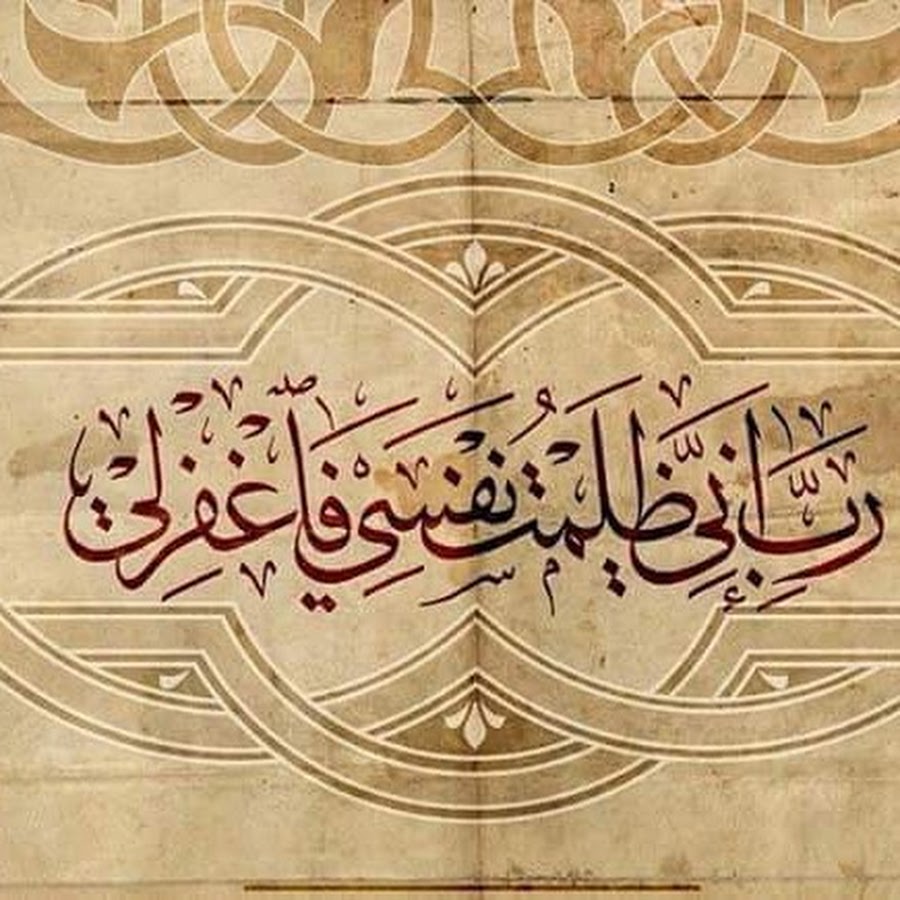 رَبِّ إِنِّي ظَلَمْتُ نَفْسِي فَاغْفِرْ لِي